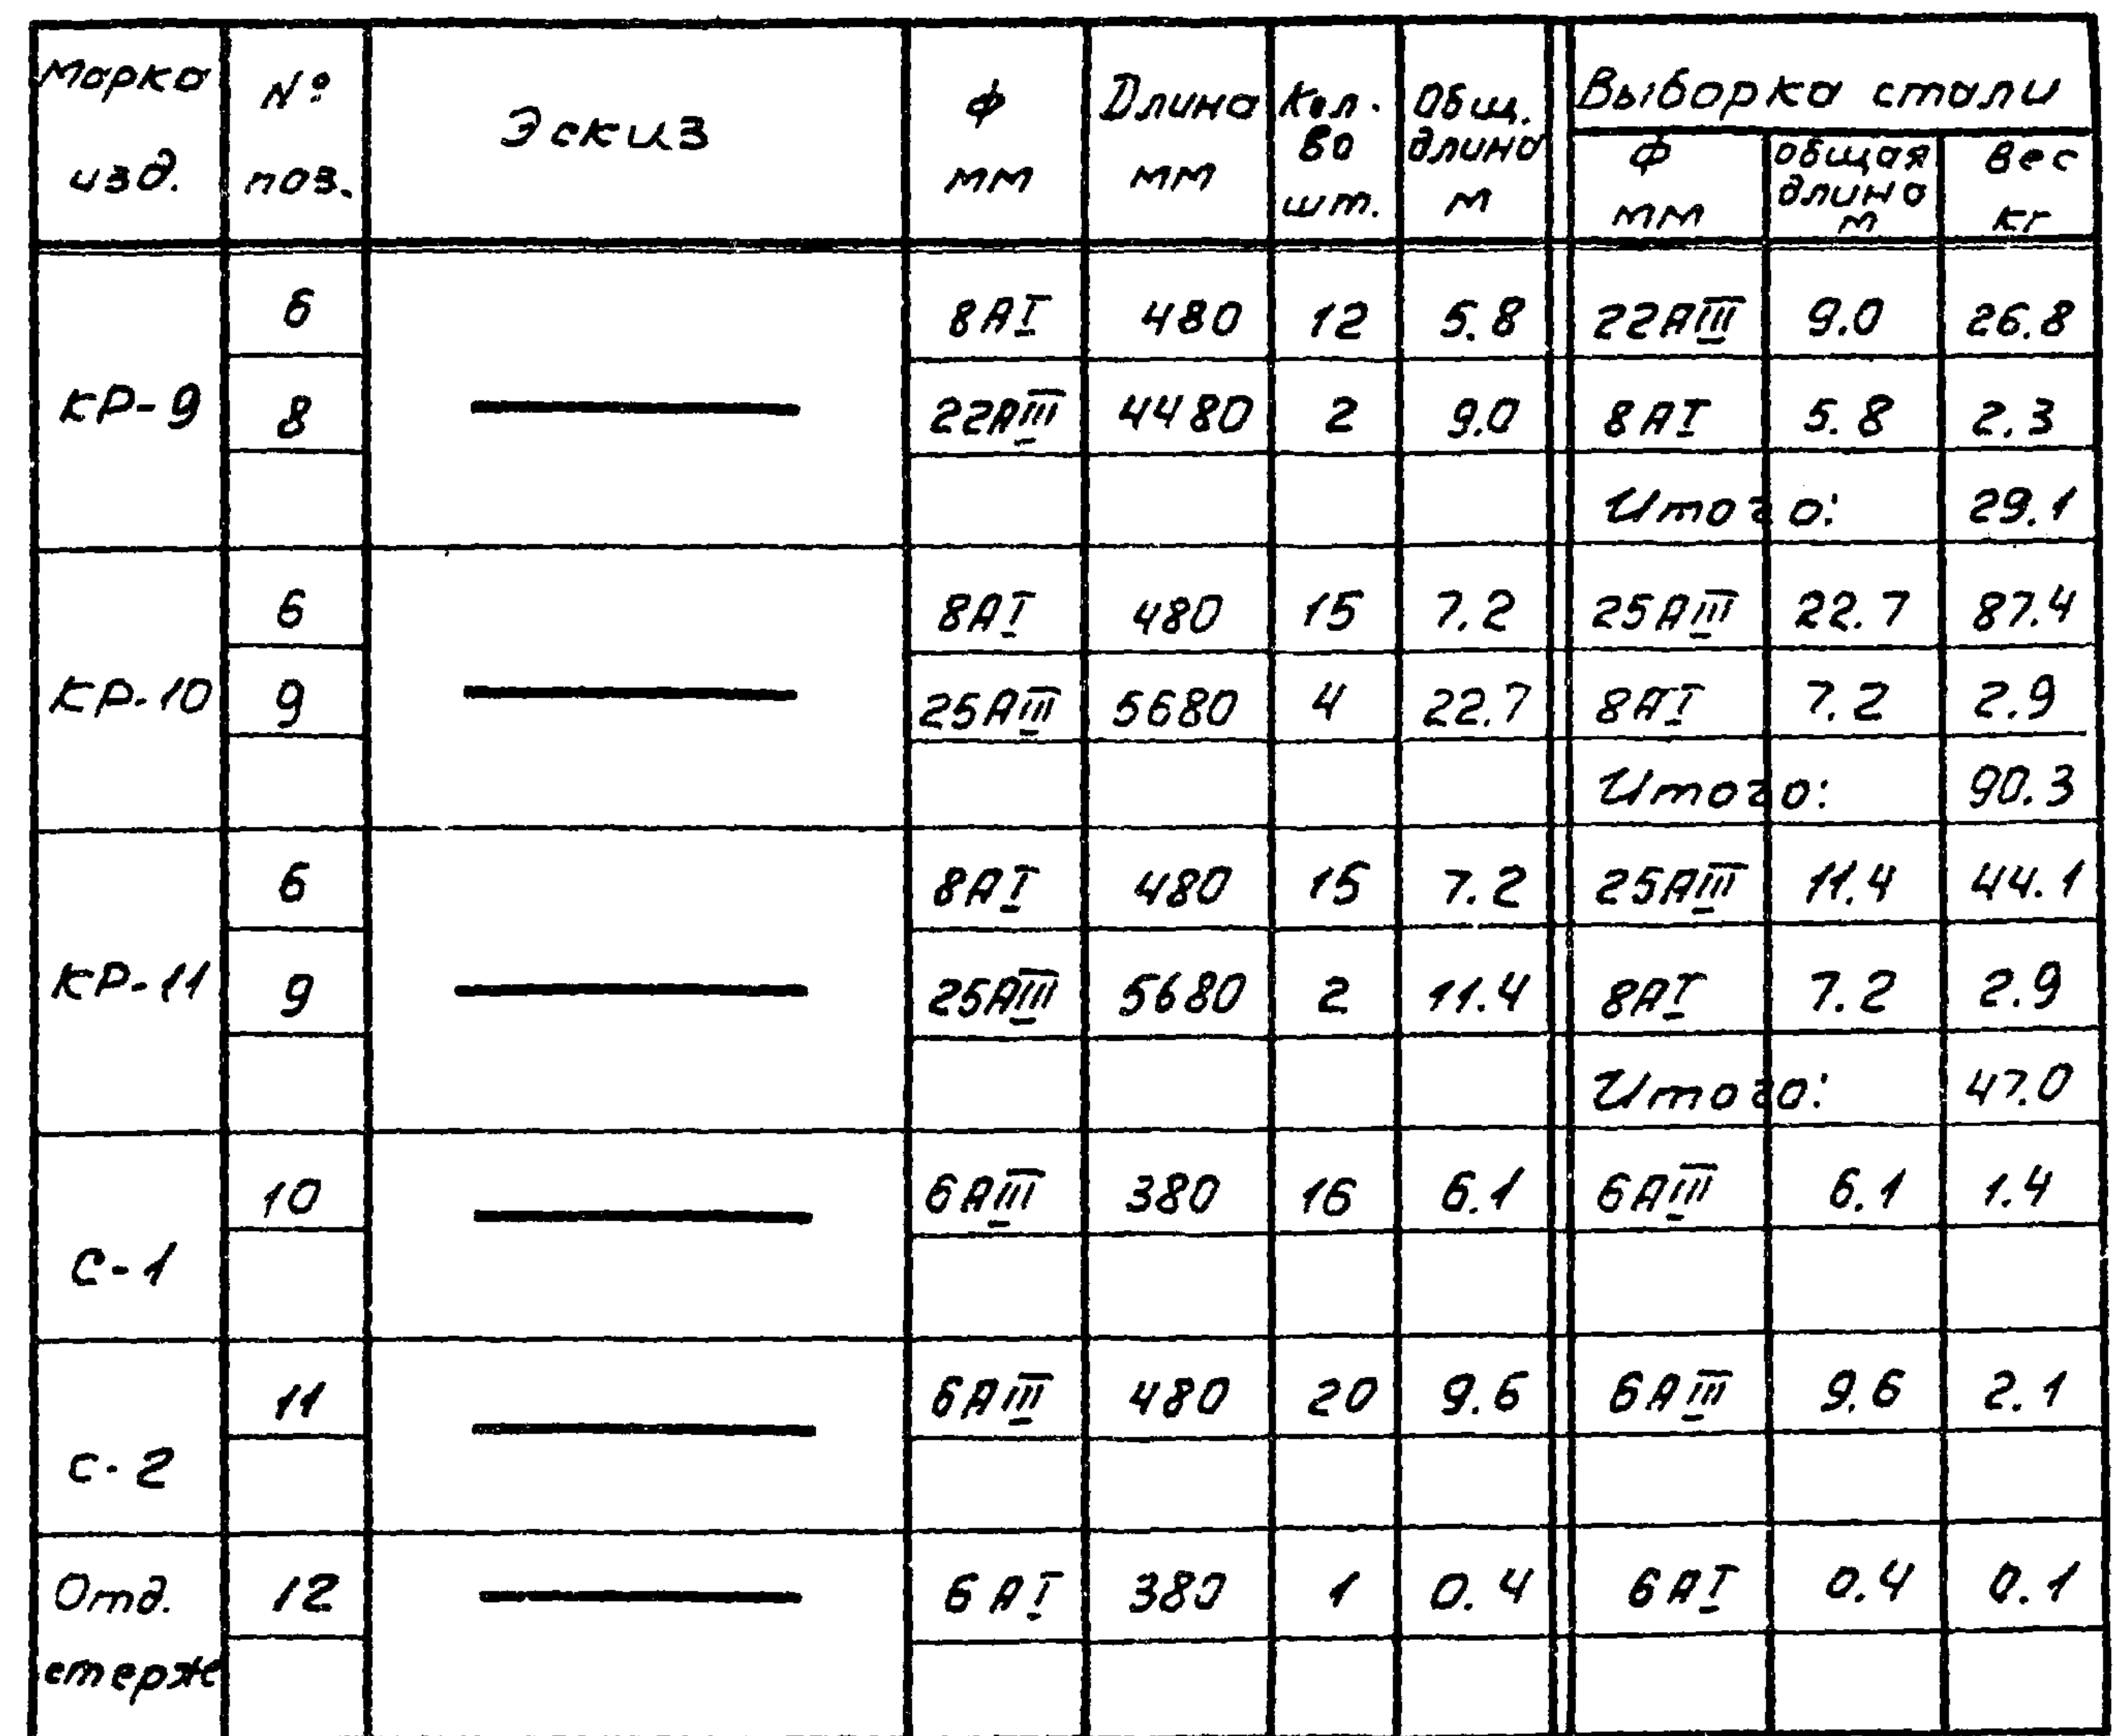 Марка изд. № поз. Эскиз ф мм Длина мм Кол-во шт. Общ. длина м Выборка стали
ф мм общая длина м Вес кг
КР-9
6 8АI 480 12 5.8 22АIII 9.0 26.8
8 22АIII 4480 2 9.0 8АI 5.8 2.3
Итого: 29.1
КР-10
6 8АI 480 15 7.2 25АIII 22.7 87.4
9 25АIII 5680 4 22.7 8АI 7.2 2.9
Итого: 90.3
КР-11
6 8АI 480 15 7.2 25АIII 11.4 44.1
9 25АIII 5680 2 11.4 8АI 7.2 2.9
Итого: 47.0
С-1
10 6АIII 380 16 6.1 6АIII 6.1 1.4
С-2
11 6АIII 480 20 9.6 6АIII 9.6 2.1
Отд. стерже
12 6АI 380 1 0.4 6АI 0.4 0.1